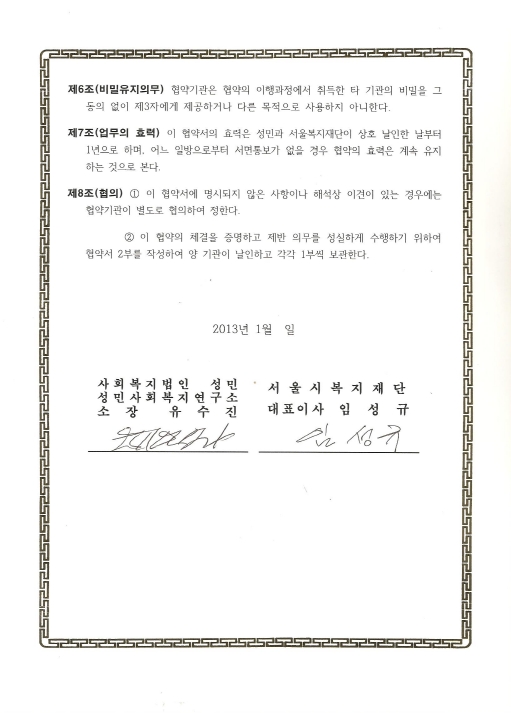 제6조(비밀유지의무) 협약기관은 협약의 이행과정에서 취득한 타 기관의 비밀을 그
동의 없이 제3자에게 제공하거나 다른 목적으로 사용하지 아니한다.
제7조(업무의 효력) 이 협약서의 효력은 성민과 서울복지재단이 상호 날인한 날부터
1년으로 하며, 어느 일방으로부터 서면통보가 없을 경우 협약의 효력은 계속 유지
하는 것으로 본다.
제8조(협의) ① 이 협약서에 명시되지 않은 사항이나 해석상 이견이 있는 경우에는
협약기관이 별도로 협의하여 정한다.
② 이 협약의 체결을 증명하고 제반 의무를 성실하게 수행하기 위하여
협약서 2부를 작성하여 양 기관이 날인하고 각각 1부씩 보관한다.
2013년 1월 일
사회복지법인 성민
성민사회복지연구소
소 장 유 수 진
서울시복지재단
대표이사 임 성 규
임 성 규